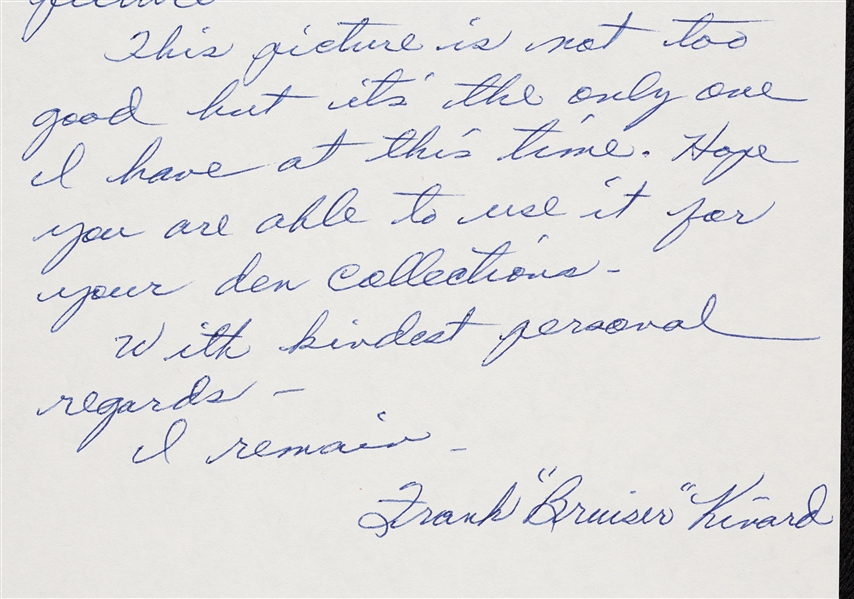 picture
This picture is not too
good but it's the only one
I have at this time. Hope
you are able to use it for
your den collections -
With kindest personal
regards -
I remain -
Frank "Bruiser" Kinard